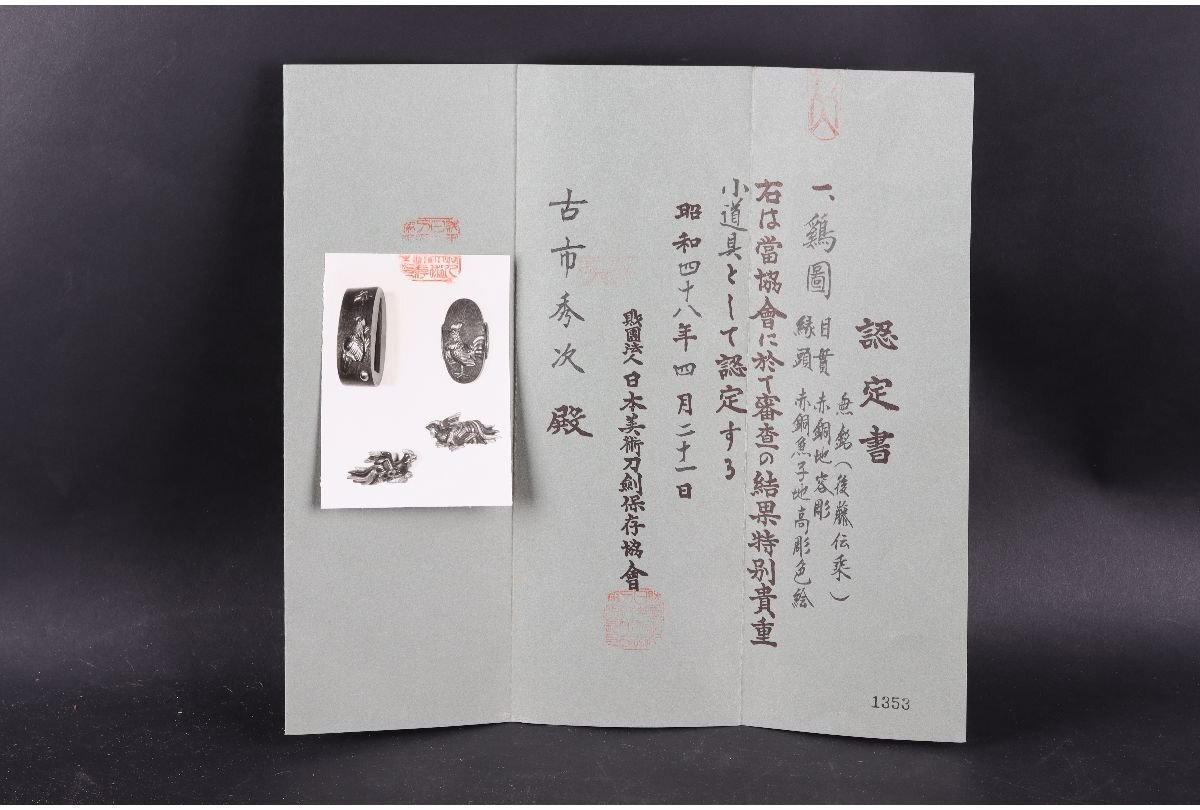 認定書
一、鷄圖 目貫 縁頭
無銘(後藤伝乗)
赤銅地容彫
赤銅魚子地高彫色絵
右は當協會に於て審査の結果特別貴重
小道具として認定する
昭和四十八年四月二十一日
財團法人日本美術刀劍保存協會
古市秀次殿
1353